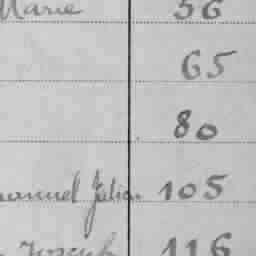 Marie 56
65
80
manuel Julian 105
Joseph 116